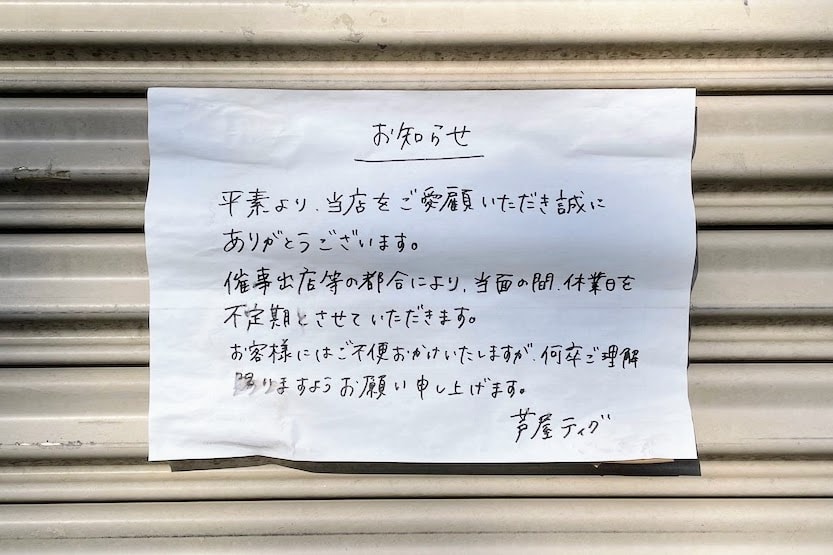 お知らせ
平素より、当店をご愛顧いただき誠に
ありがとうございます。
催事出店等の都合により、当面の間、休業日を
不定期とさせていただきます。
お客様にはご不便おかけいたしますが、何卒ご理解
賜りますようお願い申し上げます。
芦屋ティグ